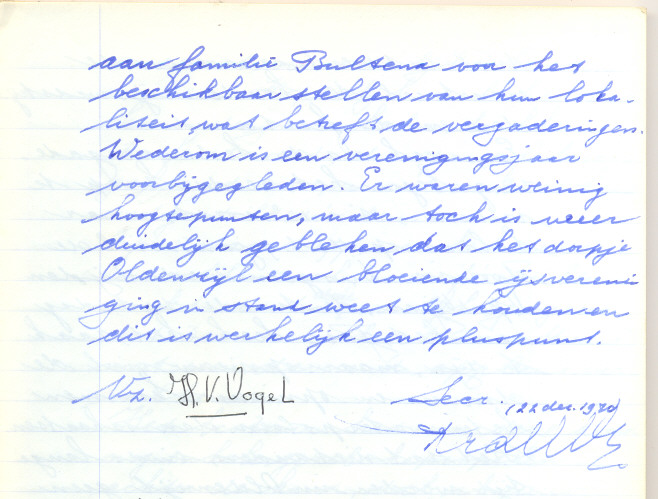 aan familie Bultena voor het
beschikbaar stellen van hun loka-
liteit, wat betreft de vergaderingen.
Wederom is een verenigingsjaar
voorbijgegleden. Er waren weinig
hoogtepunten, maar toch is weer
duidelijk gebleken dat het dorpje
Oldenzijl een bloeiende ijsvereni
ging in stand weet te houden en
dit is werkelijk een pluspunt.
Vz. H.V. Vogel
Secr. (22 dec. 1970)